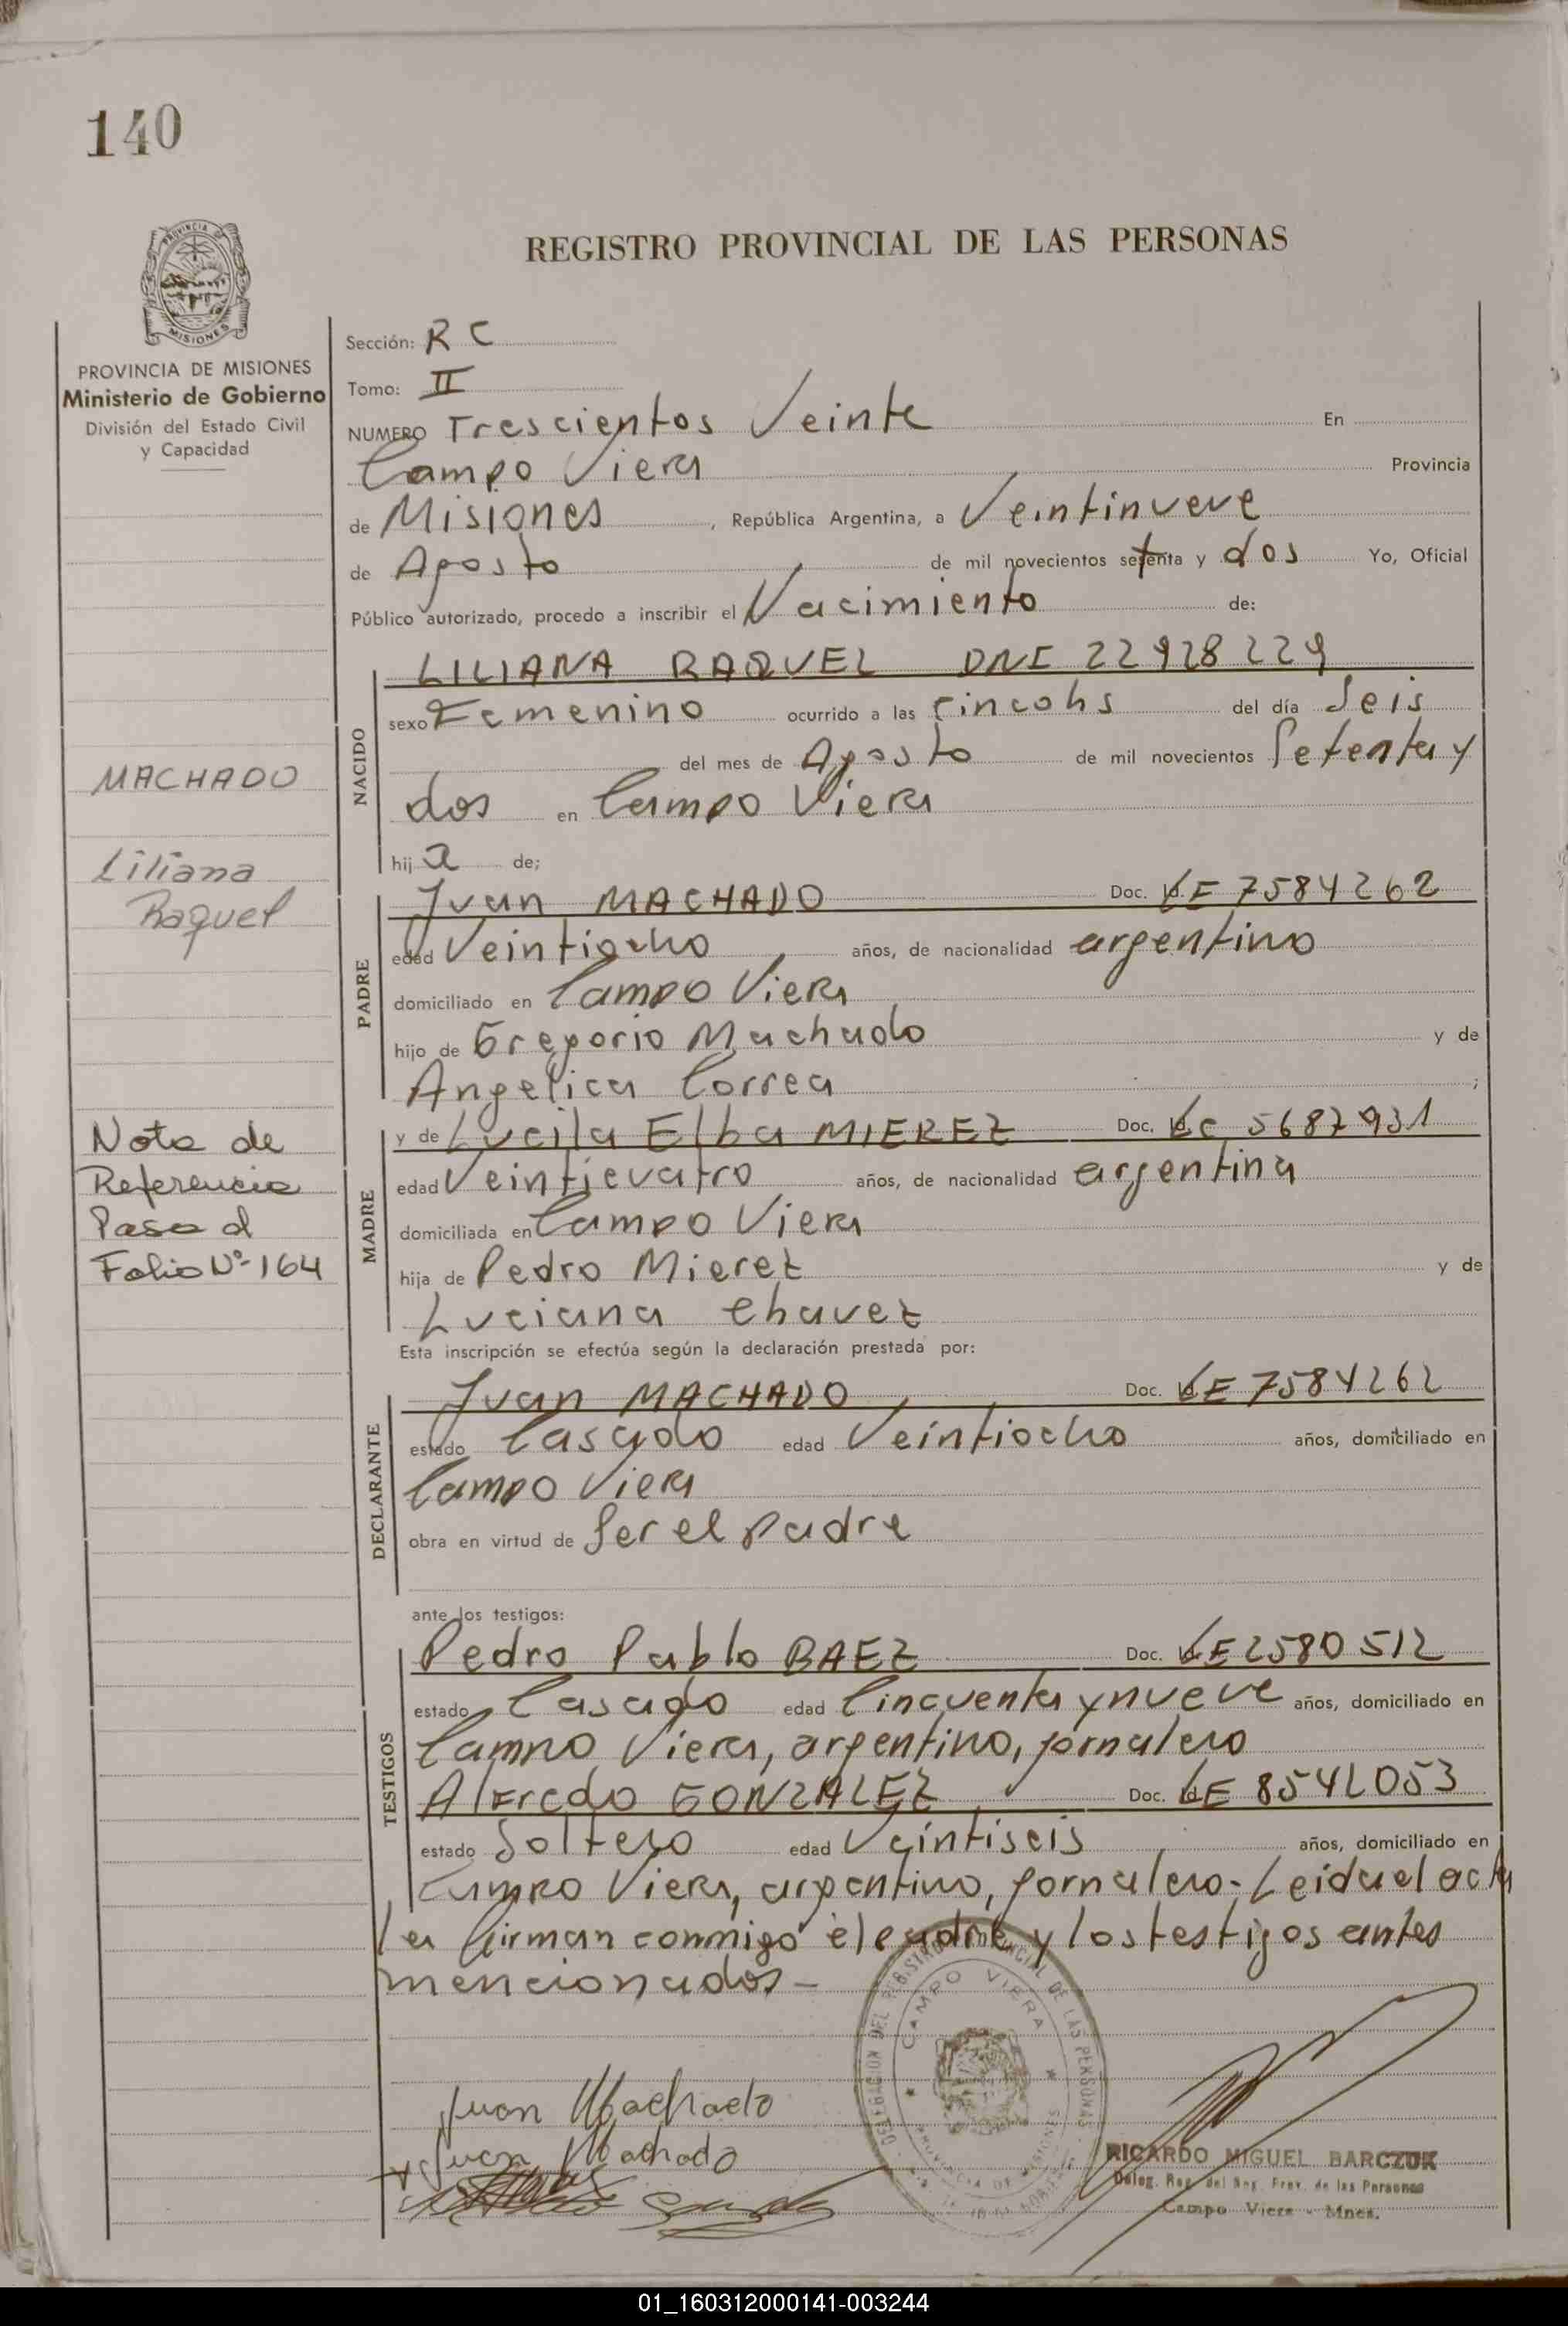 140
REGISTRO PROVINCIAL DE LAS PERSONAS
PROVINCIA DE MISIONES
Ministerio de Gobierno
División del Estado Civil
y Capacidad
MACHADO
Liliana
Raquel
Nota de
Referencia
Pasa al
Folio Nº 164
Sección: R C
Tomo: II
NUMERO Trescientos Veinte En
Campo Viera Provincia
de Misiones, República Argentina, a Veintinueve
de Agosto de mil novecientos setenta y dos Yo, Oficial
Público autorizado, procedo a inscribir el Nacimiento de:
NACIDO
LILIANA RAQUEL DNI 22928229
sexo Femenino ocurrido a las cinco hs del día Seis
del mes de Agosto de mil novecientos Setenta y
dos en Campo Viera
hija de;
PADRE
Juan MACHADO Doc. LE 7584262
edad Veintiocho años, de nacionalidad argentino
domiciliado en Campo Viera
hijo de Gregorio Machado y de
Angelica Correa ;
MADRE
y de Lucila Elba MIEREZ Doc. LC 5687931
edad Veinticuatro años, de nacionalidad argentina
domiciliada en Campo Viera
hija de Pedro Mierez y de
Luciana Chavez
Esta inscripción se efectúa según la declaración prestada por:
DECLARANTE
Juan MACHADO Doc. LE 7584262
estado Casado edad Veintiocho años, domiciliado en
Campo Viera
obra en virtud de Ser el padre
ante los testigos:
TESTIGOS
Pedro Pablo BAEZ Doc. LE 2580512
estado Casado edad Cincuenta y nueve años, domiciliado en
Campo Viera, argentino, jornalero
Alfredo GONZALEZ Doc. LE 8542053
estado Soltero edad Veintiseis años, domiciliado en
Campo Viera, argentino, jornalero- Leida el acta
la firman conmigo el padre y los testigos antes
mencionados-
DELEGACION DEL REGISTRO PROVINCIAL DE LAS PERSONAS
CAMPO VIERA
PROVINCIA DE MISIONES
Juan Machado
Juan Machado
RICARDO MIGUEL BARCZUK
Deleg. Reg. del Reg. Prov. de las Personas
Campo Viera - Mnes.
01_160312000141-003244